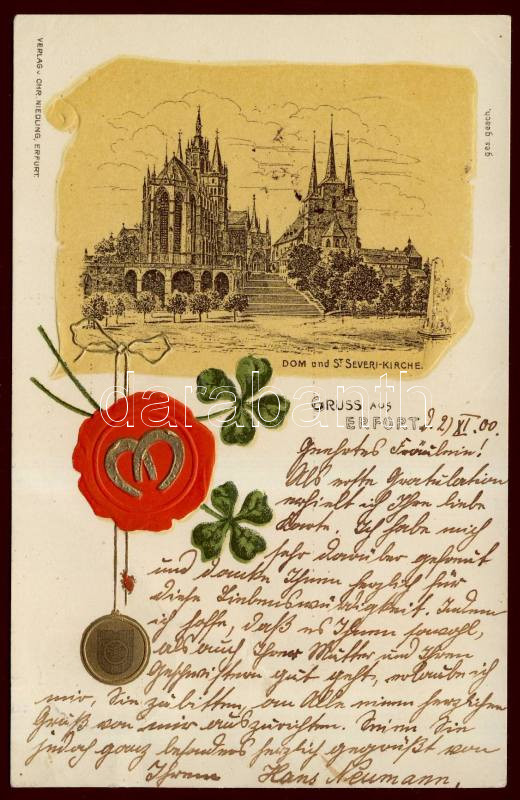 VERLAG v. CHR. NIEDLING, ERFURT.
ges. gesch.
DOM und ST SEVERI-KIRCHE.
darabanth
GRUSS AUS
ERFORT, d. 2/XI. 00.
Geehrtes Fräulein!
Als erste Gratulation
erhielt ich Ihre liebe
Karte. Ich habe mich
sehr darüber gefreut
und danke Ihnen herzlich für
diese Liebenswürdigkeit. Indem
ich hoffe, daß es Ihnen sowohl,
als auch Ihrer Mutter und Ihren
Geschwistern gut geht, erlaube ich
mir, Sie zu bitten, an Alle einen herzlichen
Gruß von mir auszurichten. Seien Sie
jedoch ganz besonders herzlich gegrüßt von
Ihrem Hans Neumann.